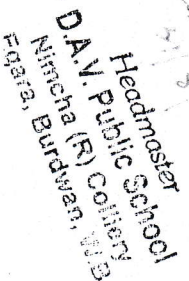 Headmaster
D.A.V. Public School
Nimcha (R) Colliery
Burdwan, W.B